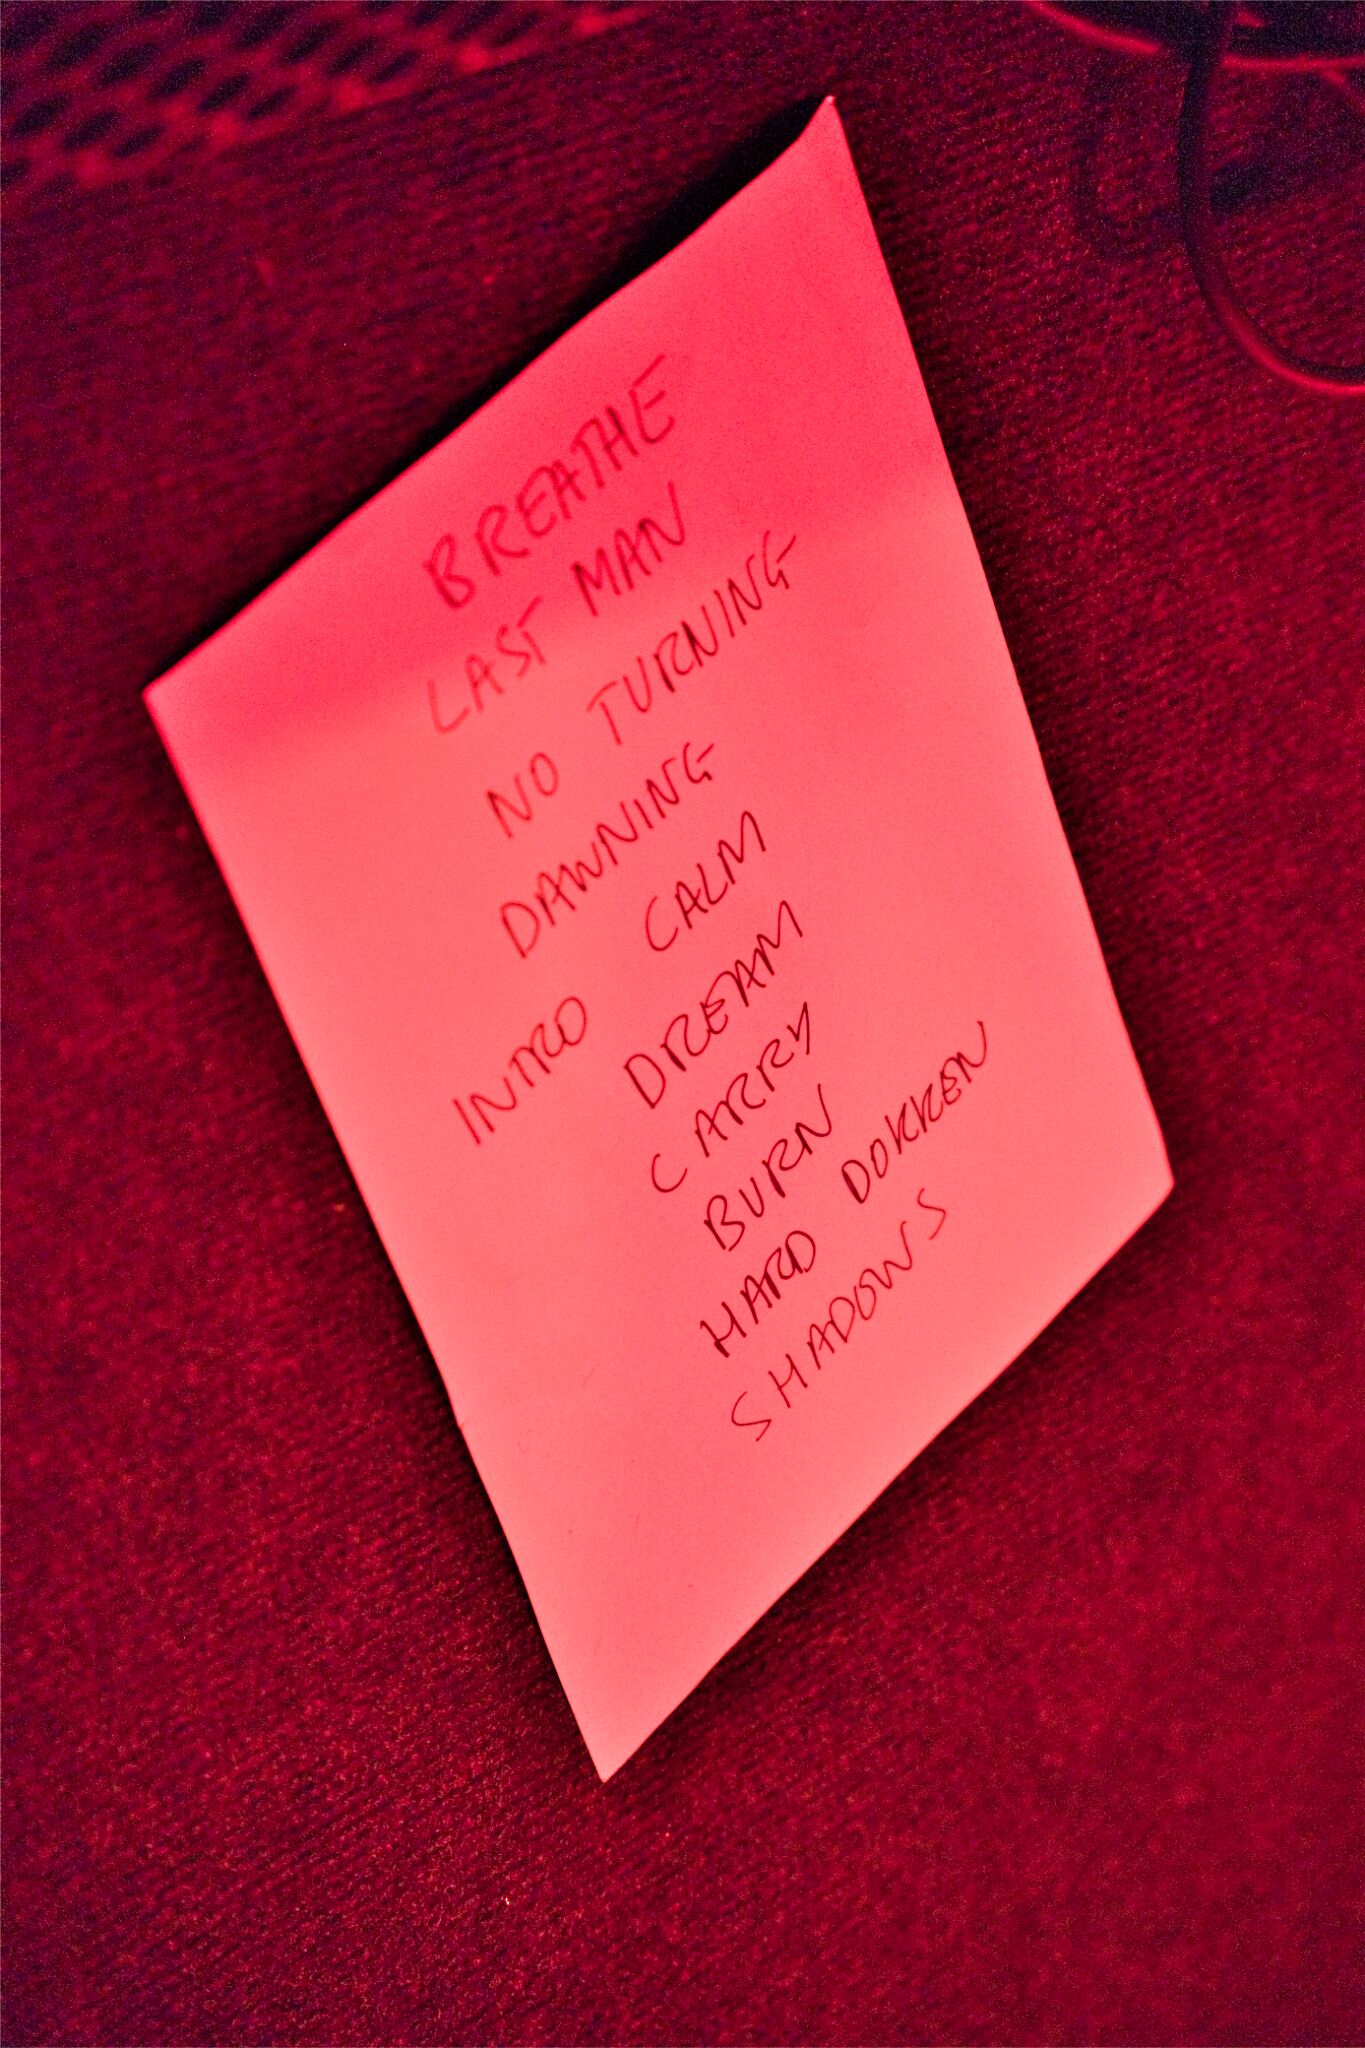 BREATHE
LAST MAN
NO TURNING
DAWNING
INTRO CALM
DREAM
CARRY
BURN
HARD DOKKEN
SHADOWS